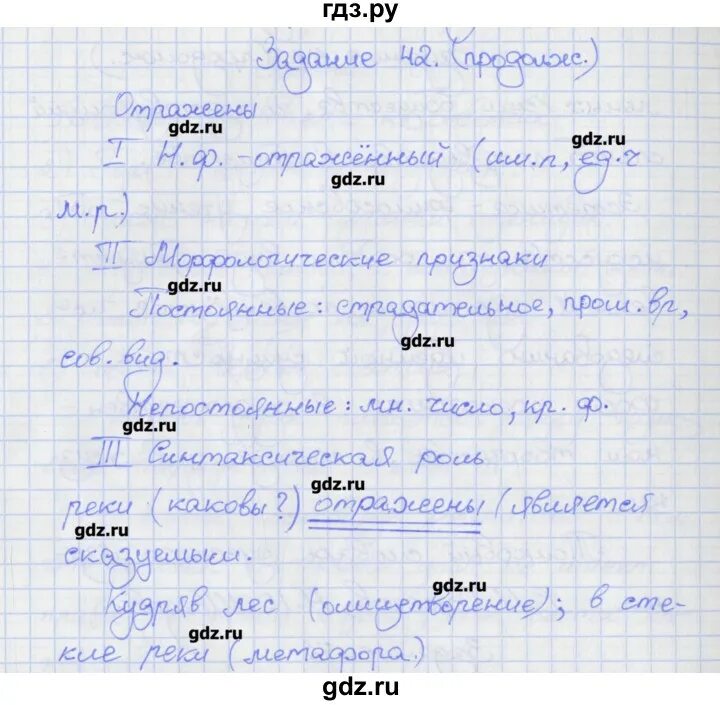 гдз.ру
Задание 42. (продолж.)
Отражены
gdz.ru
gdz.ru
I Н.ф. - отражённый (им.п, ед.ч
gdz.ru
м.р.)
II Морфологические признаки
gdz.ru
Постоянные: страдательное, прош.вр,
gdz.ru
сов.вид.
Непостоянные: мн. число, кр. ф.
gdz.ru
III Синтаксическая роль
gdz.ru
реки (каковы?) отражены (является
gdz.ru
сказуемым.
gdz.ru
Кудряв лес (олицетворение); в сте-
gdz.ru
кле реки (метафора.)
gdz.ru